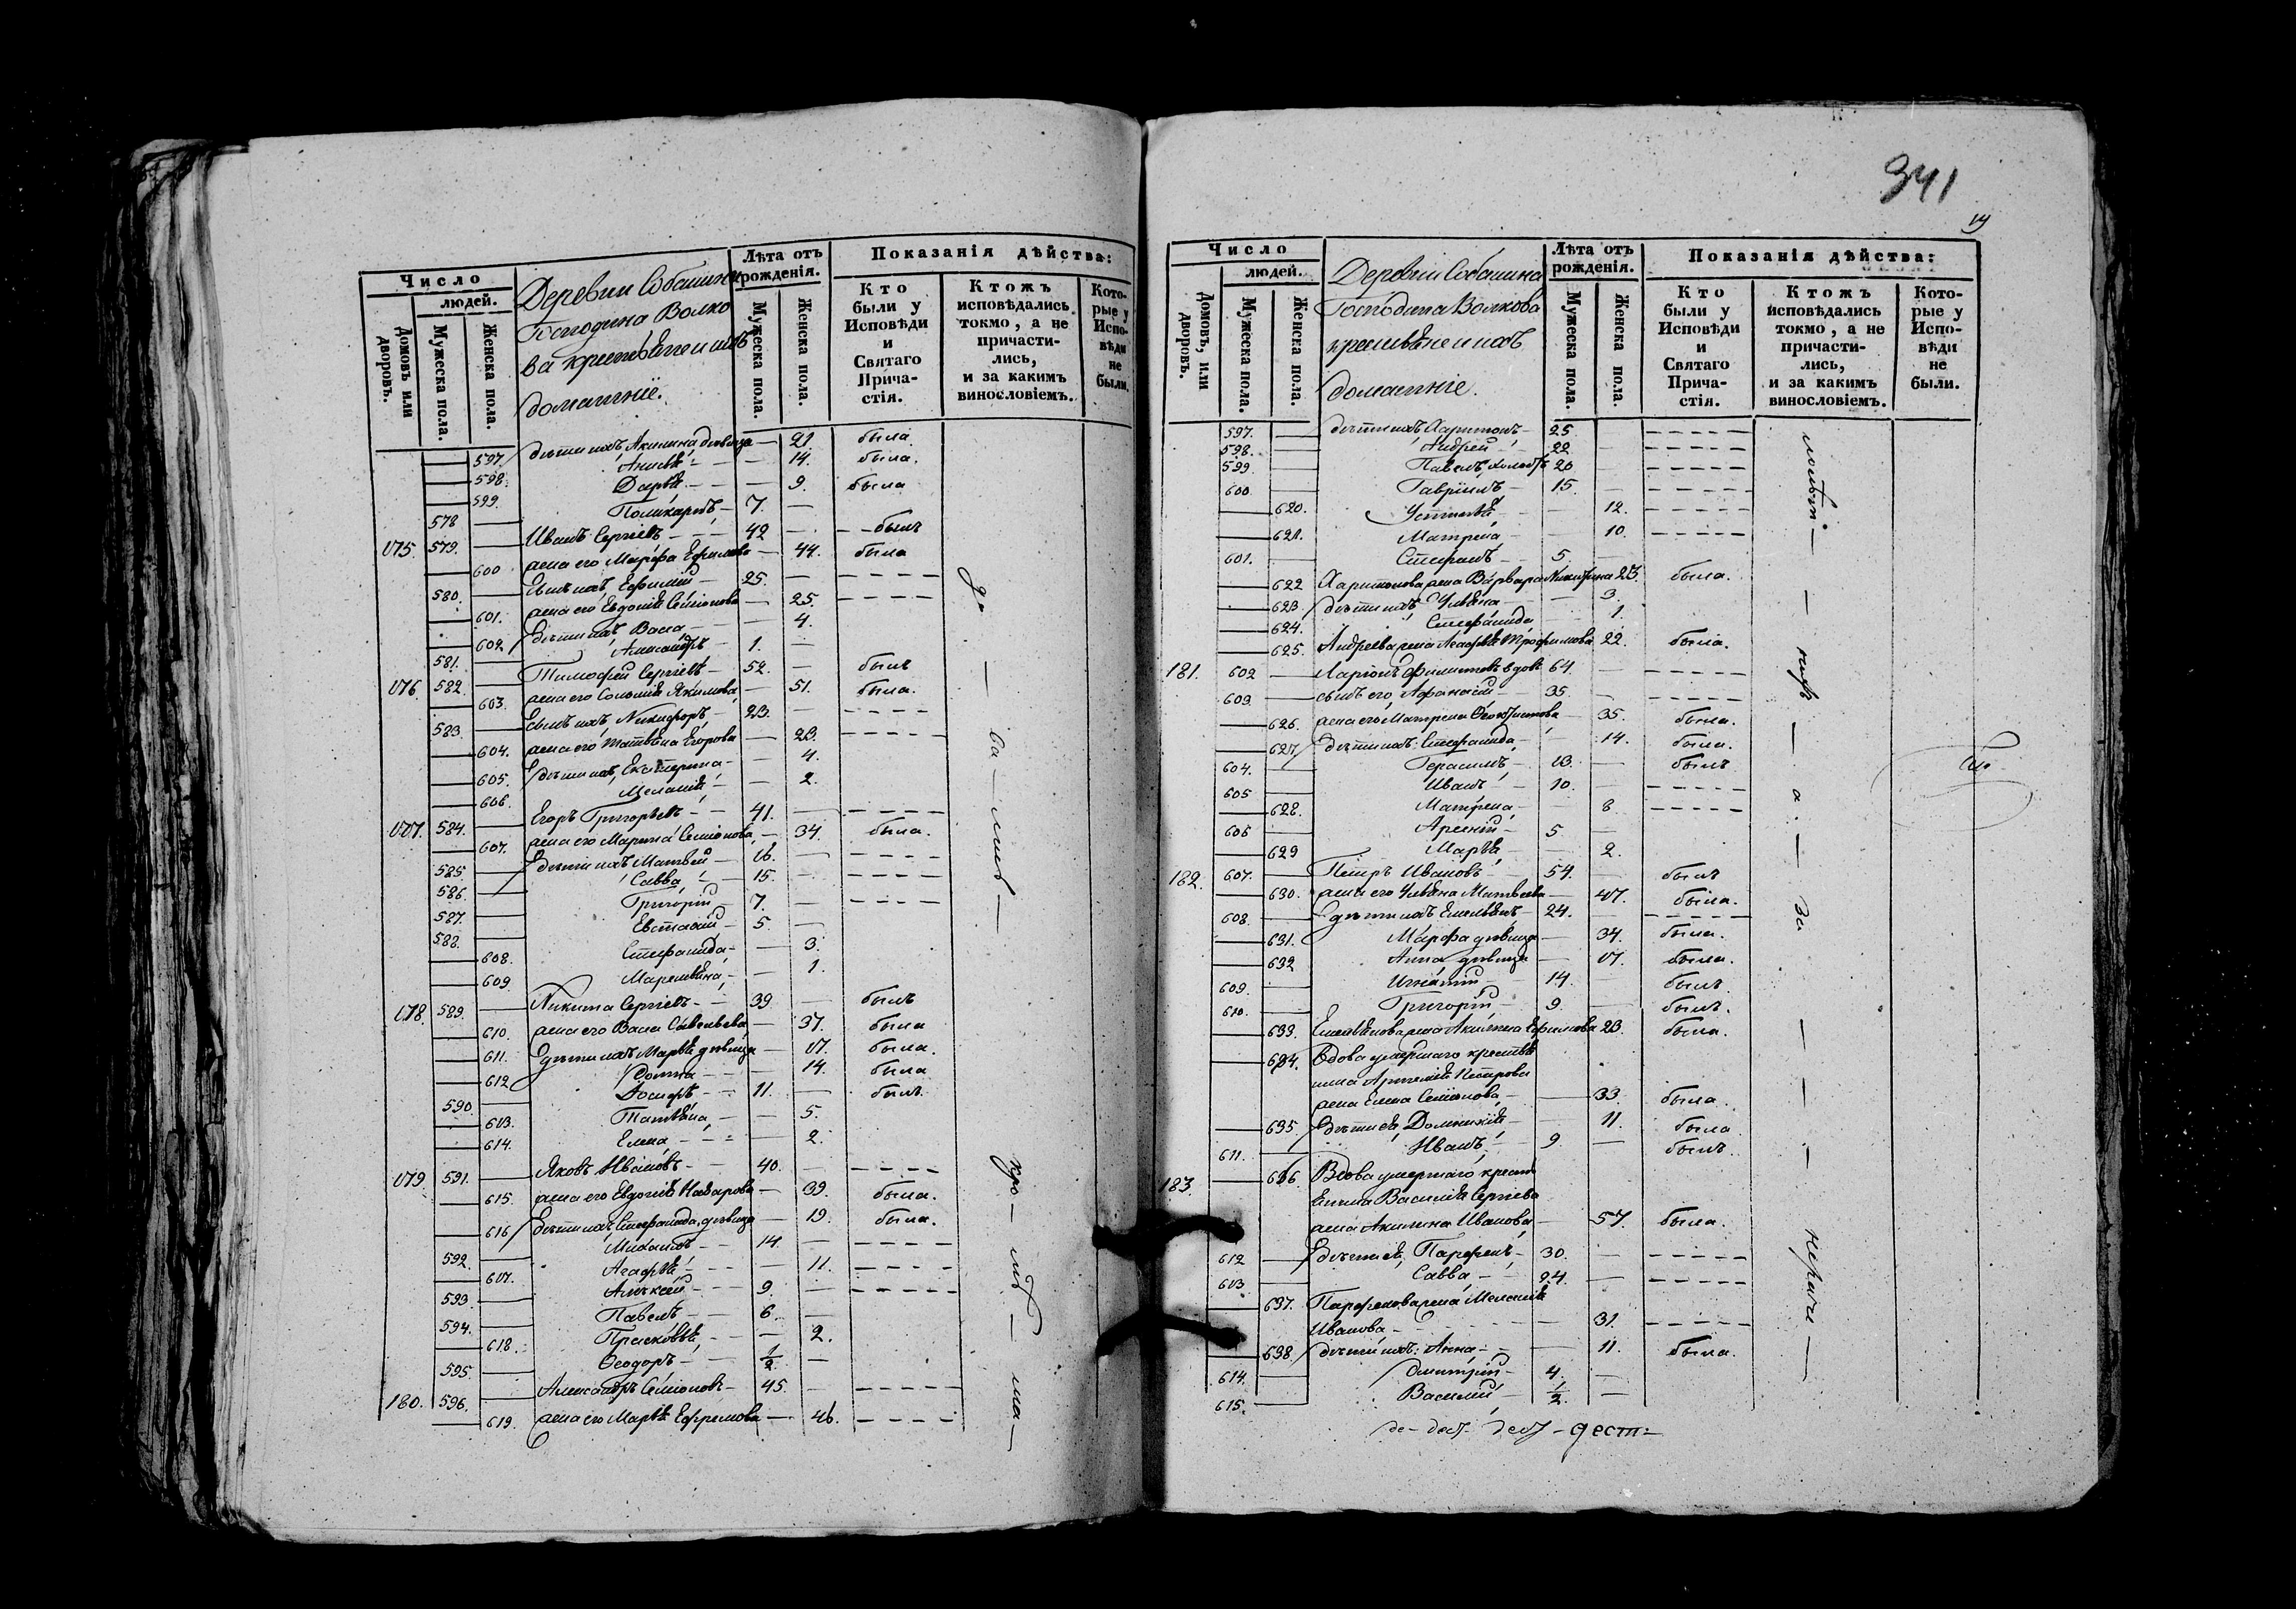 341
19
Число
людей.
Домовъ или дворовъ.
Мужеска пола.
Женска пола.
Деревни Собакина
Господина Волко
ва крестьяне и ихъ
домашніе.
Лѣта отъ рожденія.
Мужеска пола.
Женска пола.
Показанія дѣйства:
Кто были у Исповѣди и Святаго Прича- стія.
Ктожъ исповѣдались токмо, а не причасти- лись, и за какимъ винословіемъ.
Кото- рые у Испо- вѣди не были.
597. дѣти ихъ Акилина дѣвица — 21. была.
598. Анисья — 14. была.
599. Дарья — 9. была
578 Поликарпъ 7. —
175. 579. Иванъ Сергіевъ 42 — былъ
600 жена его Марфа Ефимова — 44. была
580. Сынъ ихъ Ефимій 25. —
601. жена его Евдокія Семіонова — 25.
602 дѣти ихъ Васса — 4.
581. Александръ 1. —
176 582. Тимофей Сергіевъ 52. — былъ
603. жена его Соломія Якимова — 51. была.
583. Сынъ ихъ Никифоръ 23. —
604. жена его Татьяна Егорова — 23.
605. дѣти ихъ Екатерина — 4.
606. Меланія — 2.
177. 584. Егоръ Григорьевъ 41. —
607. жена его Марина Семіонова — 34. была.
585. дѣти ихъ Матвей 16. —
586. Савва 15. —
587. Григорій 7. —
588. Евстафій 5. —
608. Стефанида — 3.
609 Маремьяна — 1.
178. 589. Никита Сергіевъ 39. — былъ
610. жена его Васса Савельева — 37. была
611. дѣти ихъ Марья дѣвица — 17. была.
612 Домна — 14. была
590. Іосифъ 11. — былъ
613. Татьяна — 5.
614. Елена — 2.
179 591. Яковъ Ивановъ 40. —
615. жена его Евдокія Назарова — 39. была.
616 дѣти ихъ Стефанида, дѣвица — 19. была.
592. Михаилъ 14. —
617. Агафья — 11.
593. Алексей 9. —
594. Павелъ 6. —
618. Прасковья — 2.
595. Ѳеодоръ 1/2 —
180. 596. Александръ Семіоновъ 45. —
619. жена его Марья Ефремова — 46.
Число
людей.
Домовъ, или дворовъ.
Мужеска пола.
Женска пола.
Деревни Собакина
Господина Волкова
крестьяне и ихъ
домашніе.
Лѣта отъ рожденія.
Мужеска пола.
Женска пола.
Показанія дѣйства:
Кто были у Исповѣди и Святаго Прича- стія.
Ктожъ исповѣдались токмо, а не причасти- лись, и за какимъ винословіемъ.
Кото- рые у Испо- вѣди не были.
597. дѣти ихъ Харитонъ 25.
598. Андрей 22
599 Павелъ 20
600 Гавріилъ 15.
620. Устинья — 12.
621. Матрена — 10.
601. Стефанъ 5
622 Харитонова жена Варвара Никитина 23. была.
623 дѣти ихъ Ульяна — 3.
624. Стефанида — 1.
625. Андреева жена Агафья Трофимова 22. была.
181. 602 Ларіонъ Филиповъ вдовъ 64.
603 сынъ его Афанасій 35.
626. жена его Матрена — 35. была.
627 дѣти ихъ: Стефанида — 14. была.
604. Герасимъ 13. — былъ
605 Иванъ 10. —
628. Матрена — 8
606 Арсеній 5 —
629 Марья — 2.
182. 607. Петръ Ивановъ 54. былъ
630. жена его Ульяна Матвеева — 47. была.
608 дѣти ихъ Емельянъ 24. —
631. Марфа дѣвица — 34. была.
632 Анна дѣвица — 17. была.
609. Игнатій 14. былъ
610. Григорій 9. — былъ.
633. Емельянова жена Акилина Ефимова 23. была.
634. Вдова умершаго крестья
нина Артемія Петрова
жена Елена Семіонова — 33. была
635 дѣти ея, Домникія — 11. была
611. Иванъ 9. — былъ
183. 636 Вдова умершаго кресть
янина Василія Сергіева
жена Акилина Иванова — 57. была.
612 дѣти ея, Парфенъ 30. —
613 Савва 24. —
637. Парфенова жена Меланія
Иванова — 31.
638 дѣти ихъ: Анна — 11. была.
614. Дмитрій 4. —
615. Василій 1/2 —